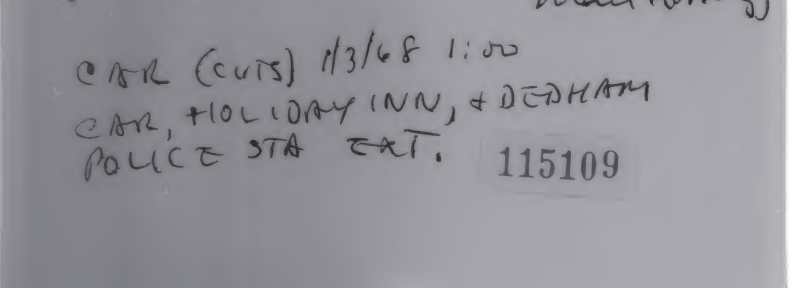 CAR (CUTS) 1/3/68 1:00
CAR, HOLIDAY INN, & DEDHAM
POLICE STA EXT. 115109